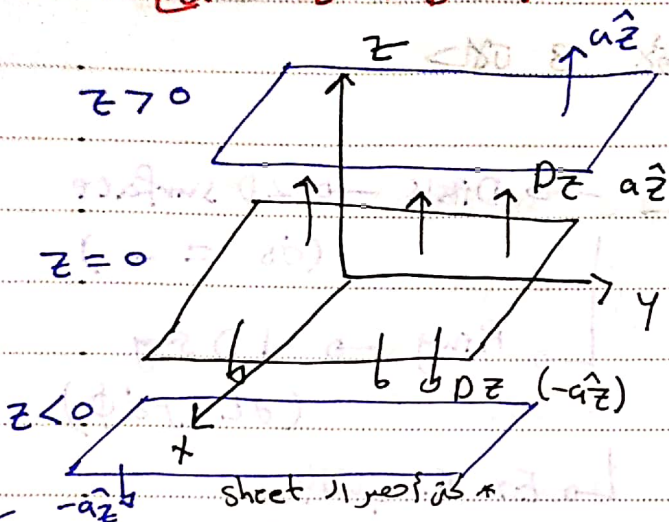 z
az^
z > 0
Dz az^
z = 0
y
Dz (-az^)
z < 0
x
-az^
* sheet الـ